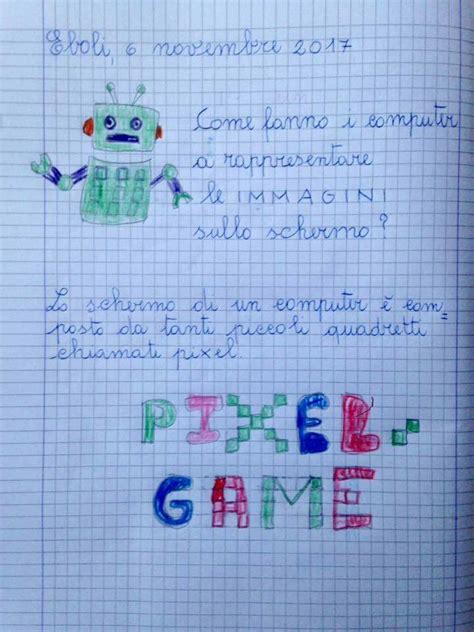 Eboli, 6 novembre 2017
Come fanno i computer
a rappresentare
le IMMAGINI
sullo schermo?
Lo schermo di un computer è com=
posto da tanti piccoli quadretti
chiamati pixel.
PIXEL
GAME